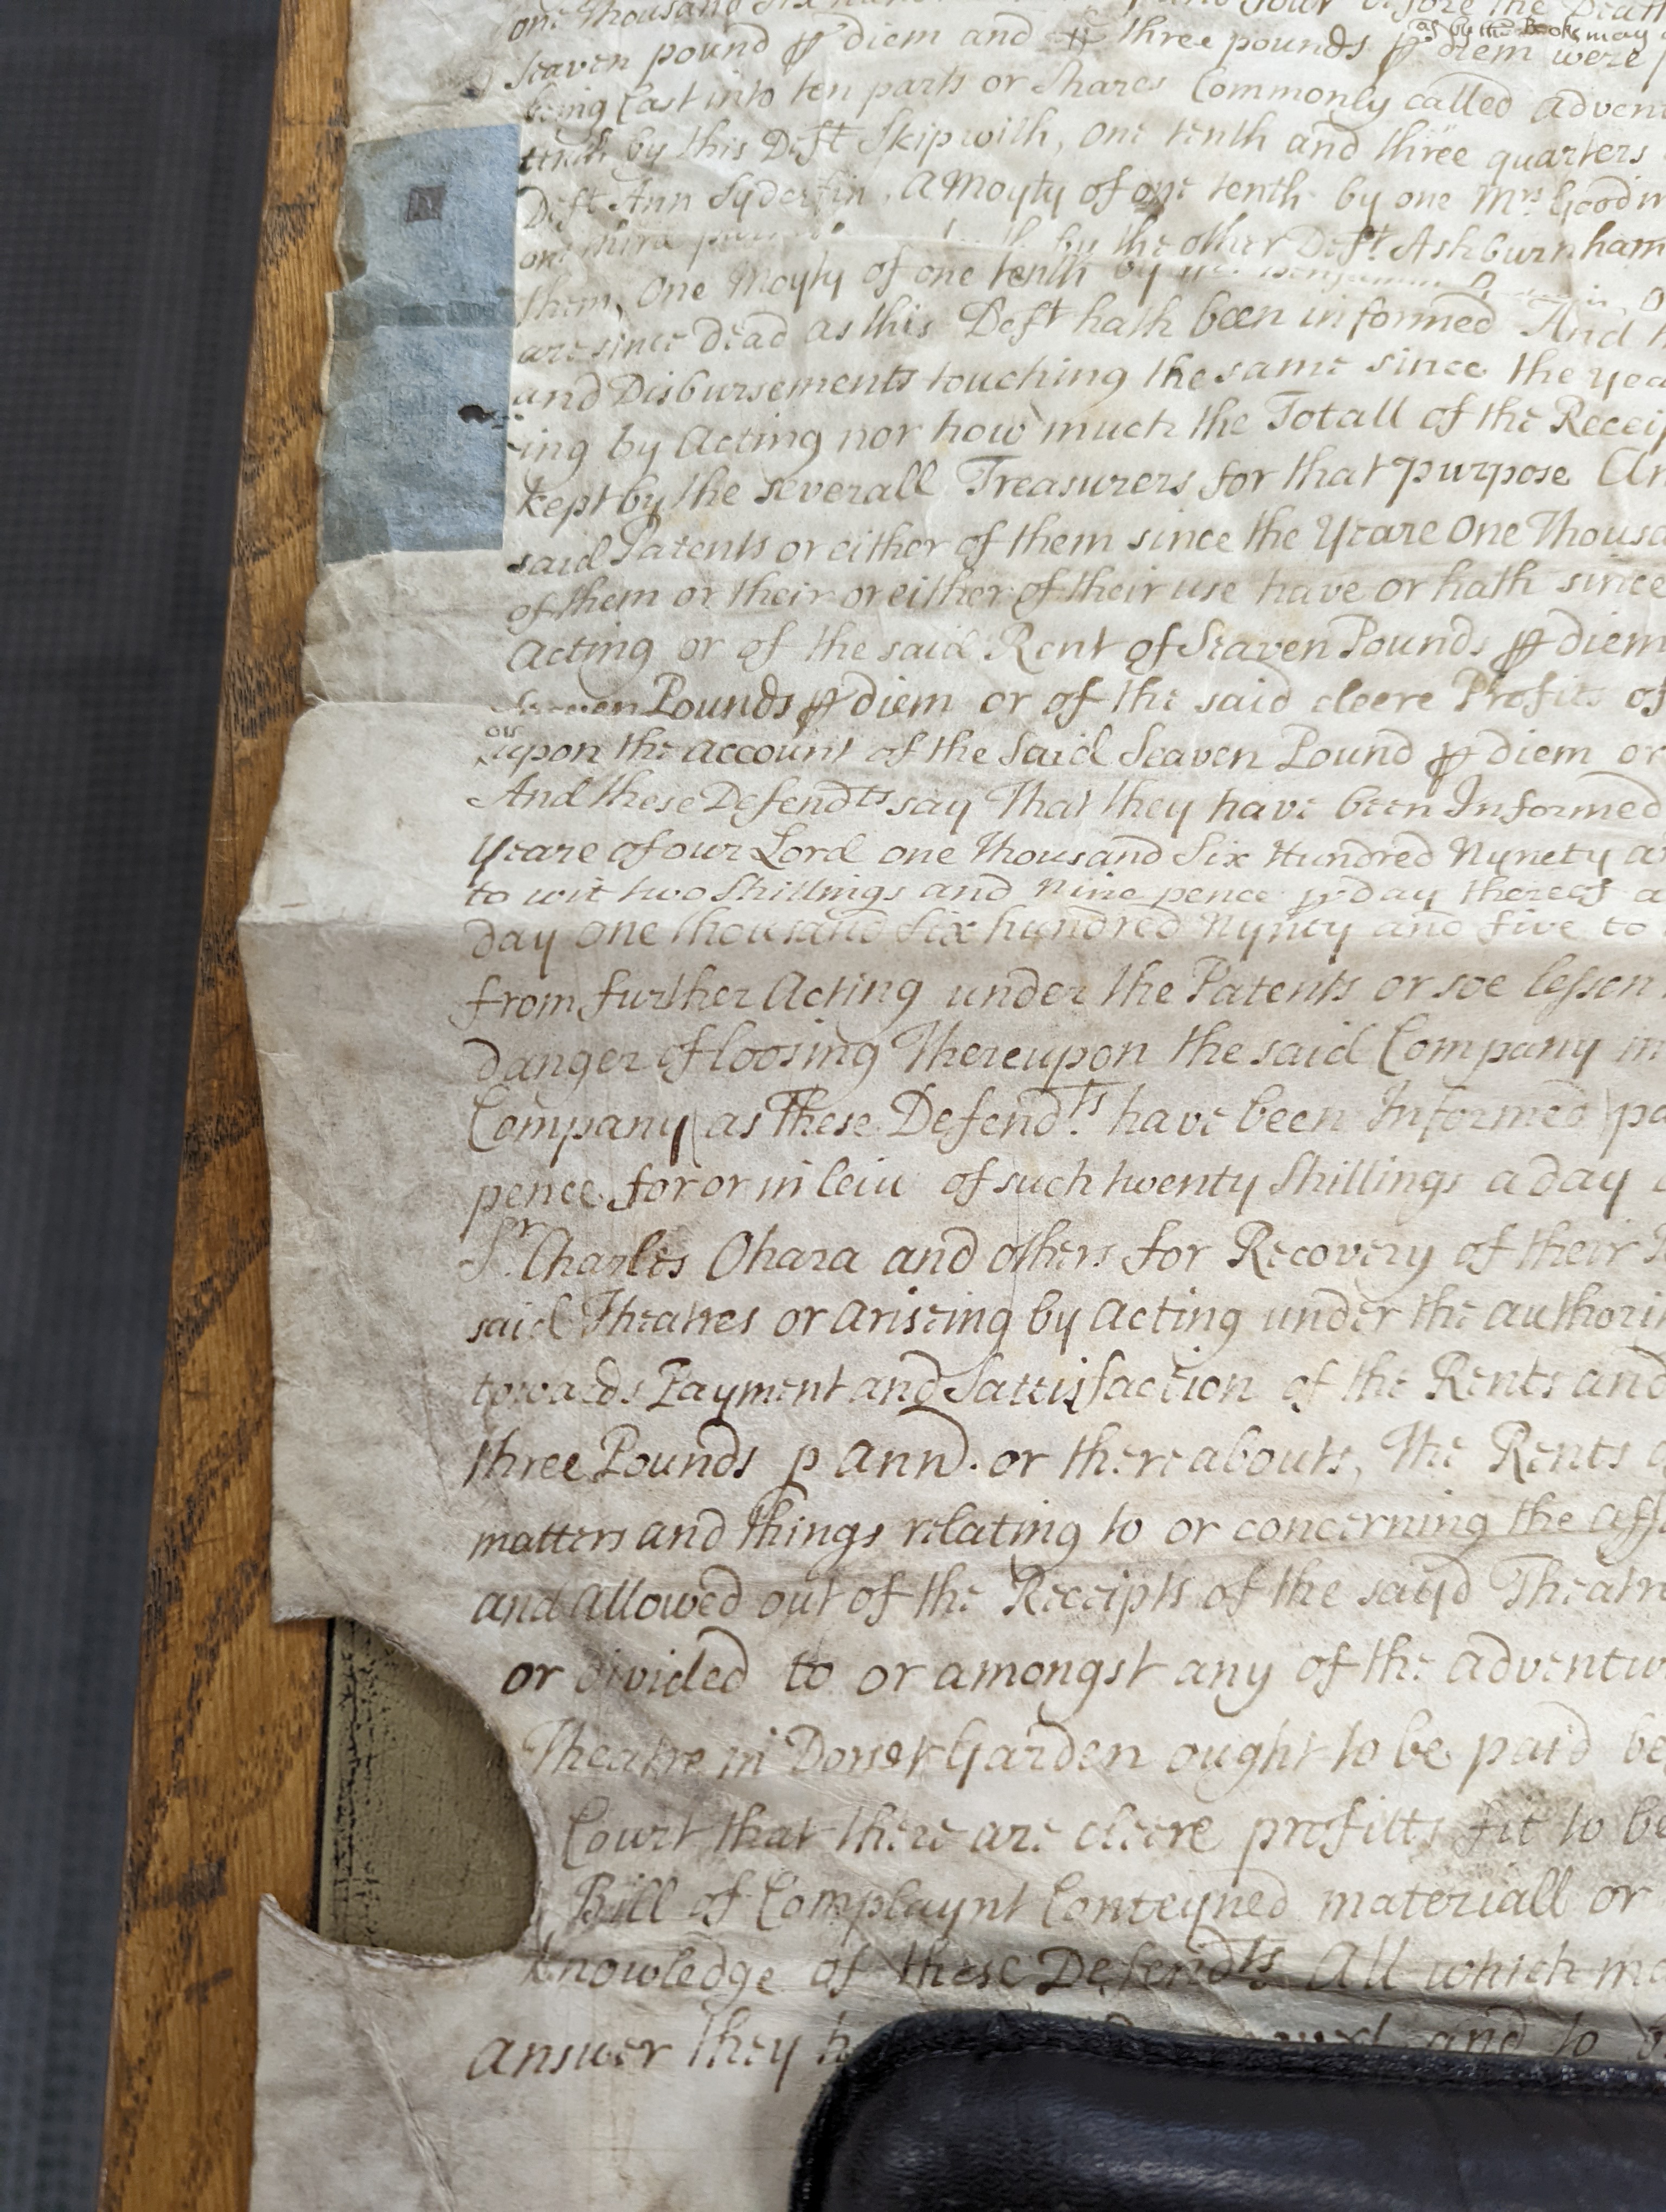 one Thousand Six
Seaven pound ꝑ diem and three pounds ꝑ diem were
as by the Books may
being Cast into ten parts or Shares Commonly called advent
tenth by this Deft Skipwith, One tenth and three quarters
Deft Ann Syderfin, a Moyty of one tenth by one Mrs Goodw
one third by the other Deft Ashburnham
them, One Moyty of one tenth by
are since dead as this Deft hath been informed And
and Disbursements touching the same since the yea
ing by Acting nor how much the Totall of the Receip
kept by the severall Treasurers for that purpose An
said Patents or either of them since the Yeare One Thousa
of them or their or either of their use have or hath since
Acting or of the said Rent of Seaven Pounds ꝑ diem
Seaven Pounds ꝑ diem or of the said cleere Profits of
or
upon the account of the Said Seaven Pound ꝑ diem or
And these Defendts say That they have been Informed
Yeare of our Lord one Thousand Six Hundred Nynety a
to wit two Shillings and Nine pence pr day thereof a
day One thousand Six hundred Nynty and five to
from further Acting under the Patents or soe lessen
danger of loosing Thereupon the said Company m
Company (as These Defendts have been Informed) pa
pence for or in leiu of such twenty Shillings a day
Sr Charles Ohara and others for Recovery of their
said Theatres or ariseing by Acting under the authorit
towards Payment and Sattisfaction of the Rents and
three Pounds p Ann. or thereabouts, The Rents
matters and things relating to or concerning the affa
and allowed out of the Receipts of the sayd Theatre
or divided to or amongst any of the adventu
Theatre in Dorset Garden ought to be paid be
Court that there are cleere profitts fit to be
Bill of Complaynt Conteyned materiall or
knowledge of these Defendts All which ma
answer they and to